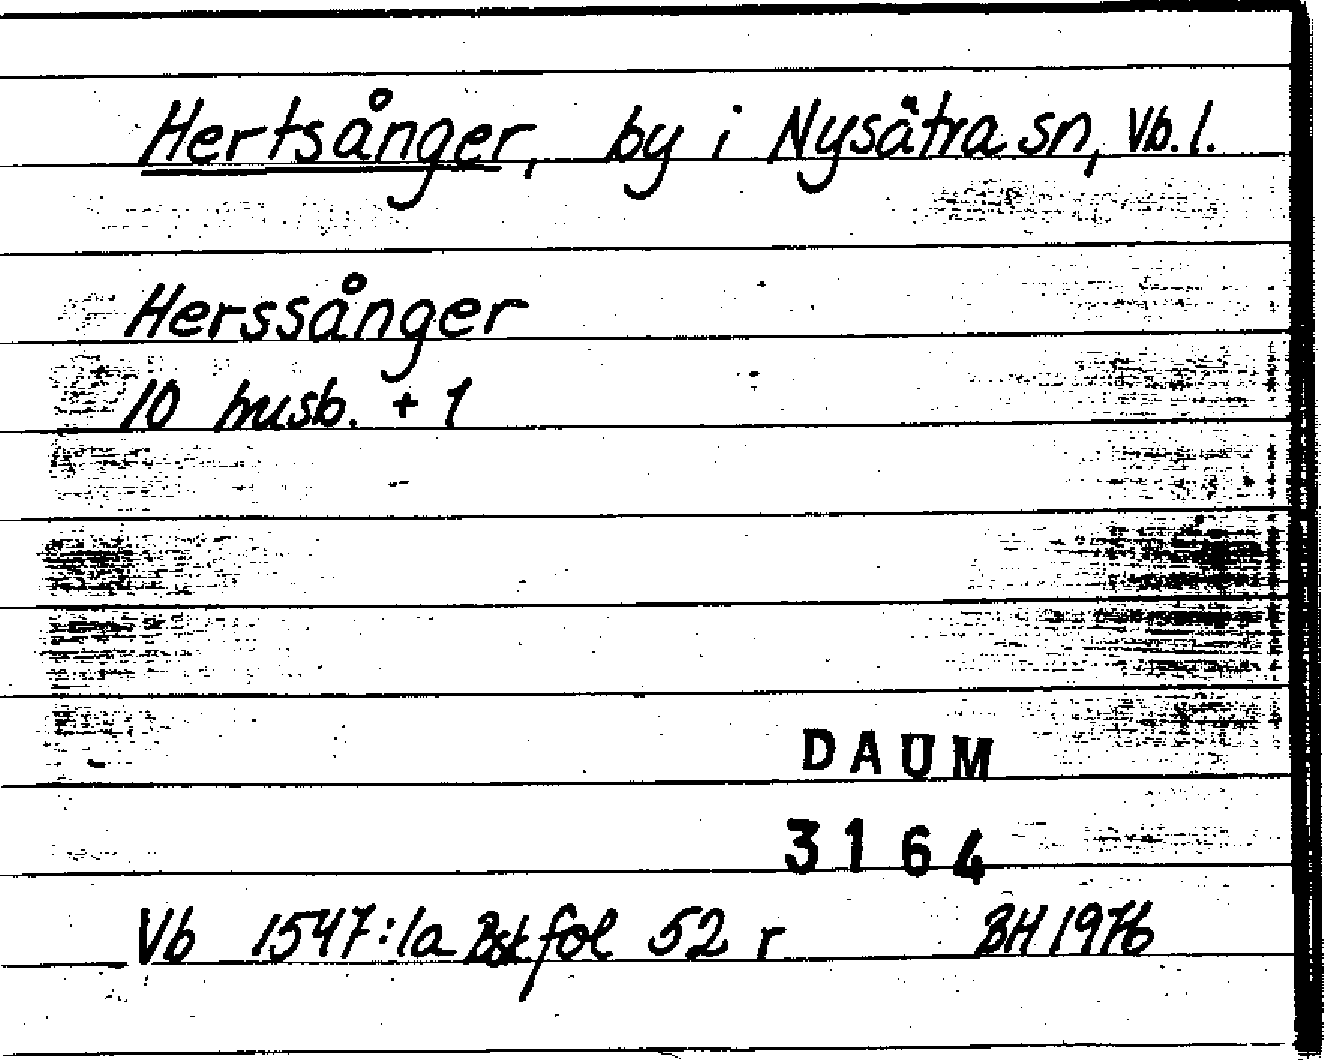 Hertsånger, by i Nysätra sn, Vb. l.
Herssånger
10 husb. + 1
DAUM
3164
Vb 1547:1a Bsk fol 52 r BH 1976